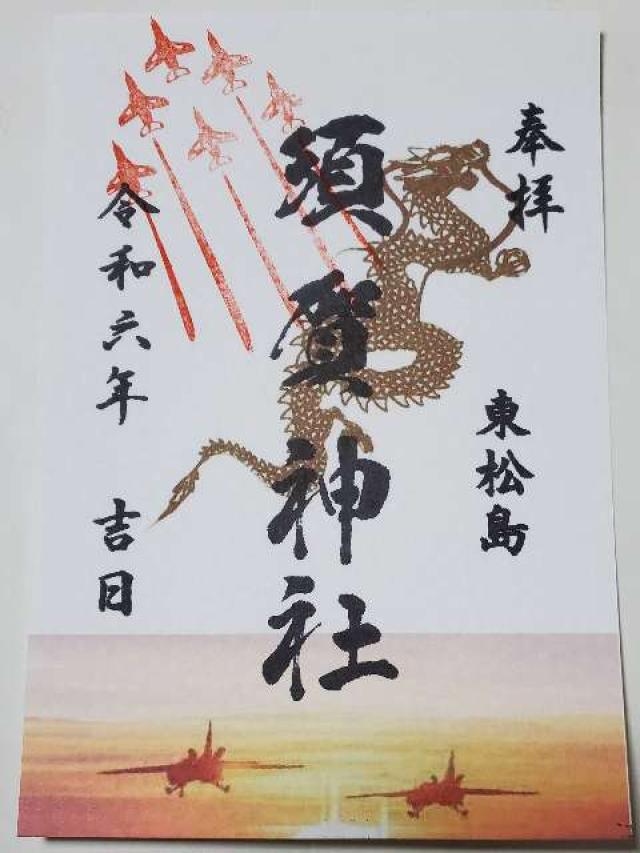 奉拝
東松島
須賀神社
令和六年
吉日